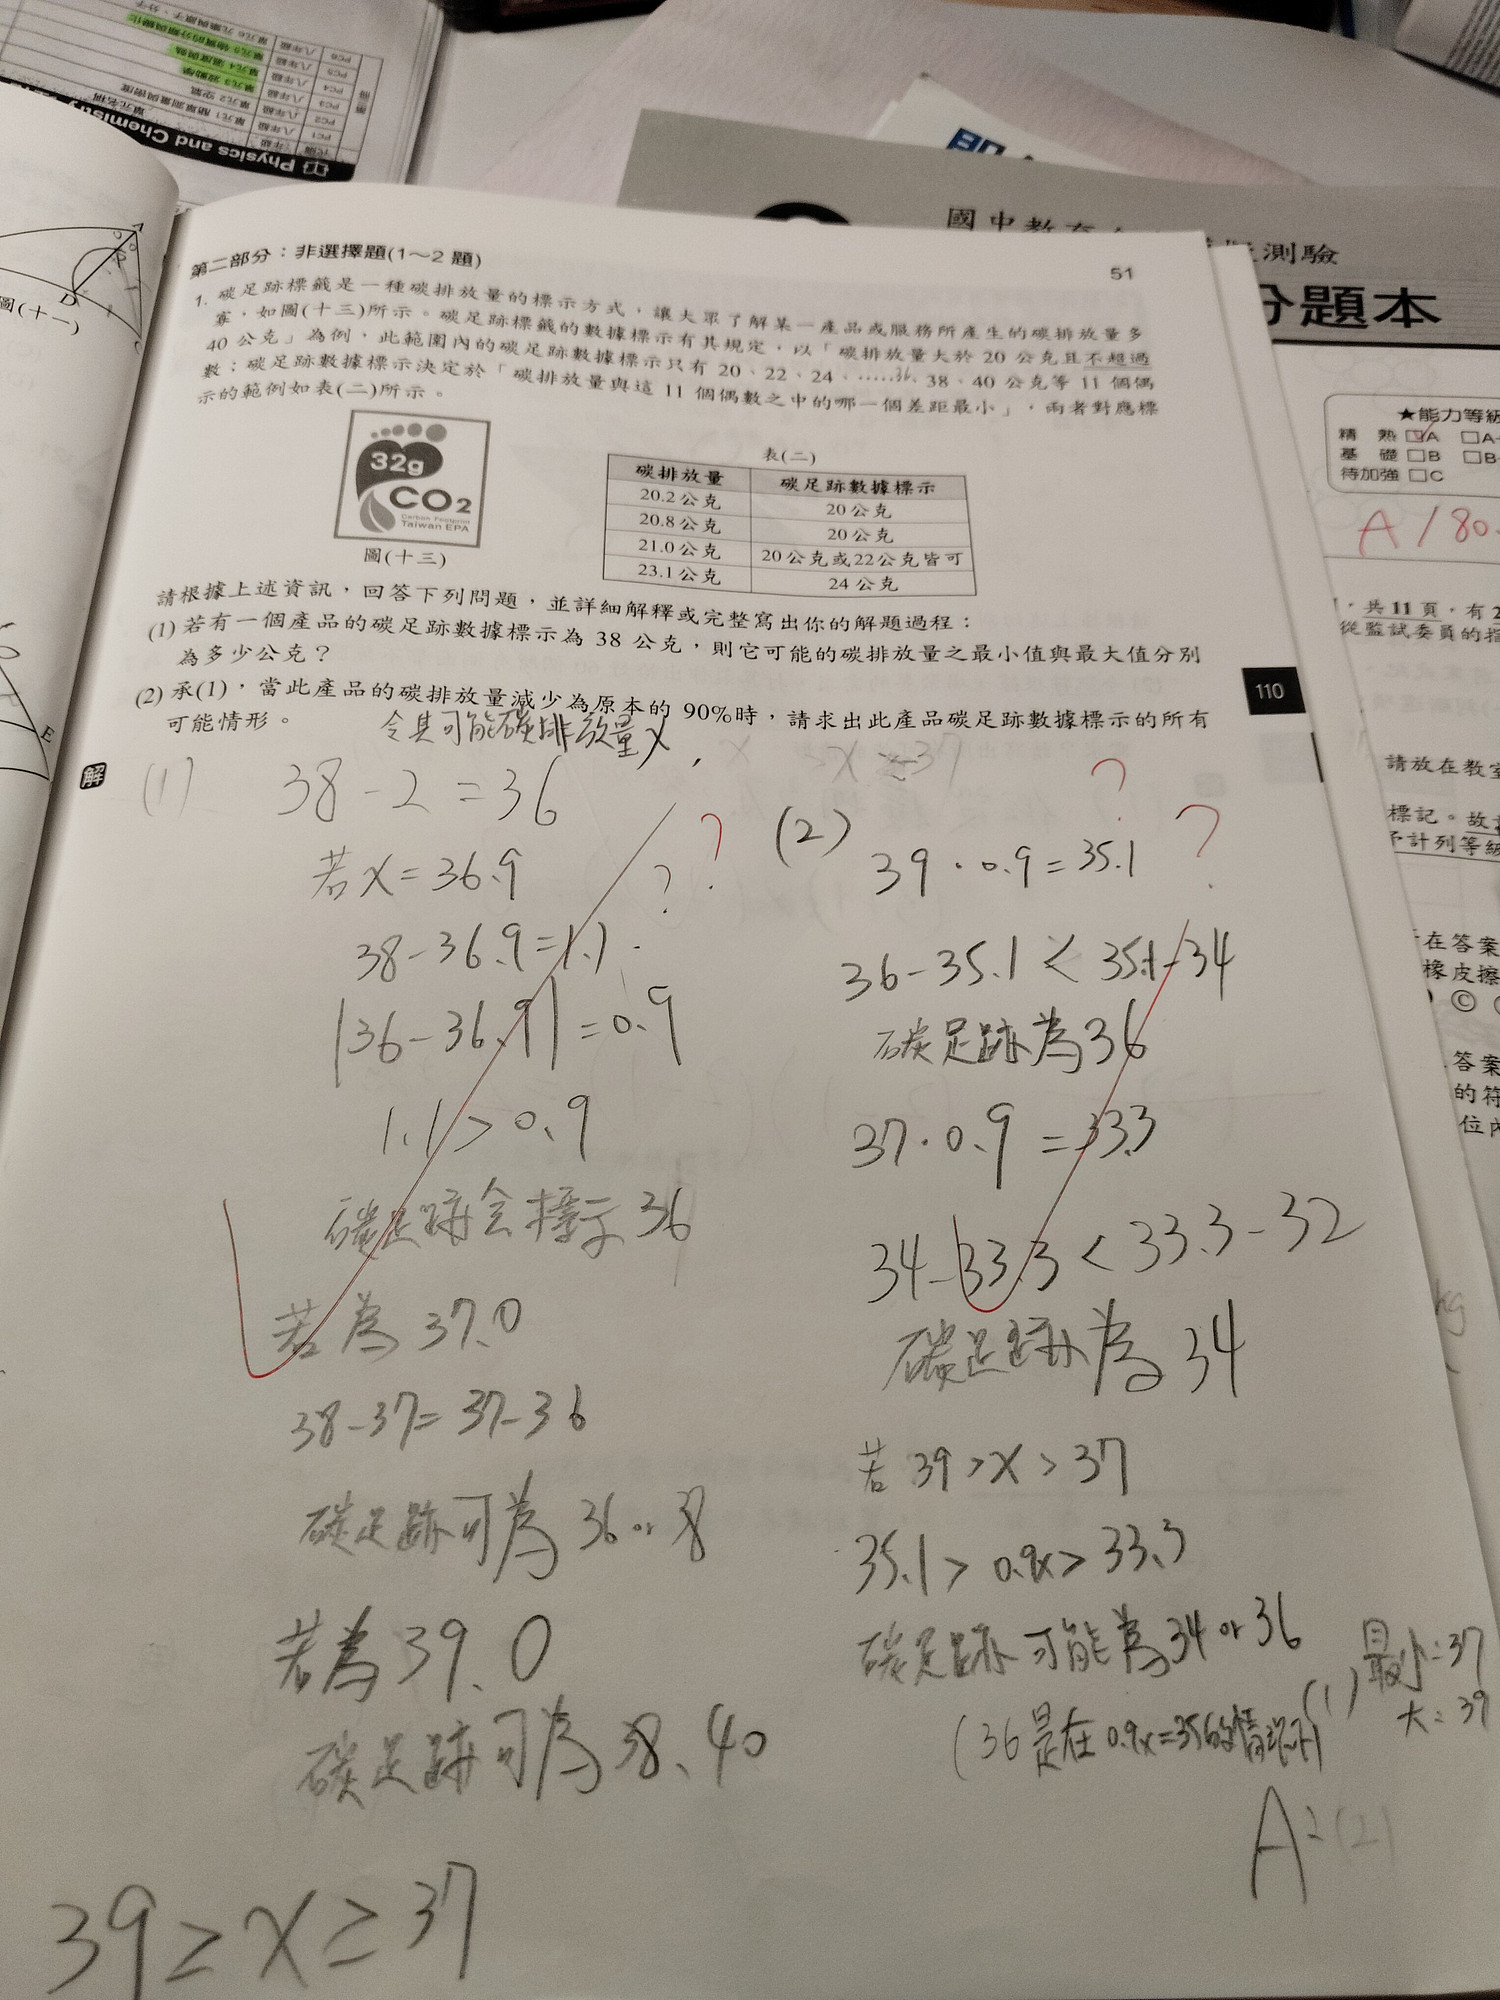 Physics and Chemistry
國中教育
測驗
分題本
第二部分：非選擇題(1～2 題)
51
1. 碳足跡標籤是一種碳排放量的標示方式，讓大眾了解某一產品或服務所產生的碳排放量多
寡，如圖(十三)所示。碳足跡標籤的數據標示有其規定，以「碳排放量大於 20 公克且不超過
40 公克」為例，此範圍內的碳足跡數據標示只有 20、22、24、……36、38、40 公克等 11 個偶
數；碳足跡數據標示決定於「碳排放量與這 11 個偶數之中的哪一個差距最小」，兩者對應標
示的範例如表(二)所示。
32g
CO2
Carbon Footprint
Taiwan EPA
圖(十三)
表(二)
碳排放量 碳足跡數據標示
20.2公克 20公克
20.8公克 20公克
21.0公克 20公克或22公克皆可
23.1公克 24公克
請根據上述資訊，回答下列問題，並詳細解釋或完整寫出你的解題過程：
(1) 若有一個產品的碳足跡數據標示為 38 公克，則它可能的碳排放量之最小值與最大值分別
為多少公克？
(2) 承(1)，當此產品的碳排放量減少為原本的 90%時，請求出此產品碳足跡數據標示的所有
可能情形。
110
解
令其可能碳排放量x，
(1) 38-2=36
若x=36.9
38-36.9=1.1
|36-36.9|=0.9
1.1>0.9
碳足跡会標示36
若為37.0
38-37=37-36
碳足跡可為36 or 38
若為39.0
碳足跡可為38、40
39≥x≥37
(2)
39·0.9=35.1
36-35.1<35.1-34
碳足跡為36
37·0.9=33.3
34-33.3<33.3-32
碳足跡為34
若39>x>37
35.1>0.9x>33.3
碳足跡可能為34 or 36
(1) 最小:37
大:39
A:(2)
圖(十一)
D
E
★能力等級
精 熟 □A □A
基 礎 □B □B
待加強 □C
A / 80
共11頁，有2
從監試委員的指
請放在教室
標記。故
予計列等級
在答案
橡皮擦
答案
的符
位內